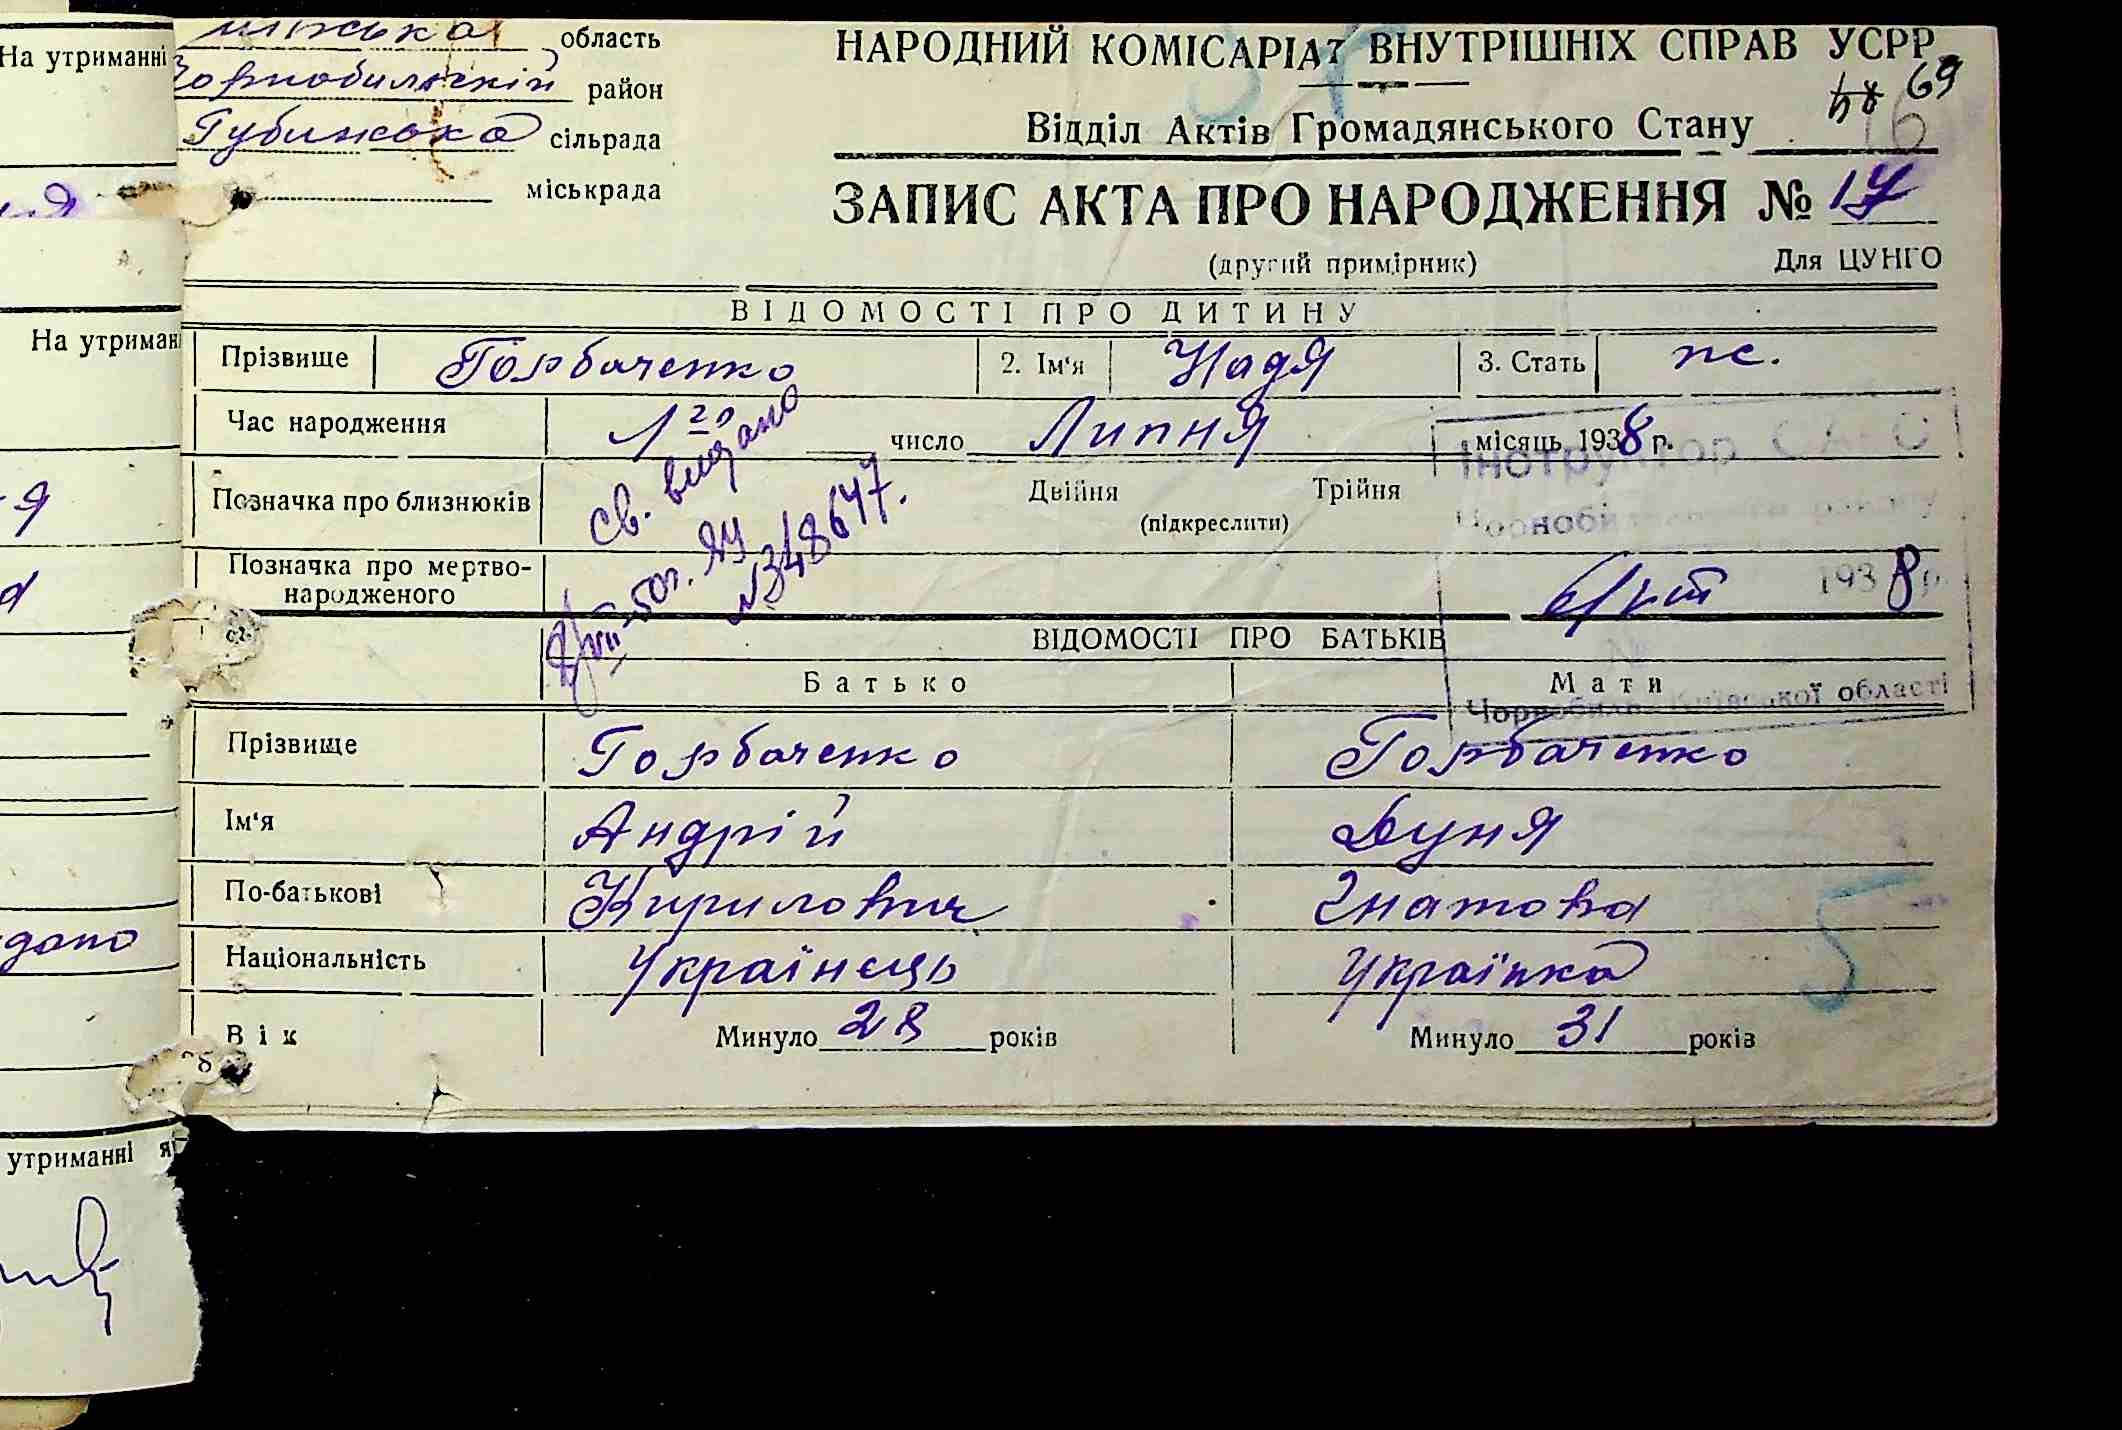 На утриманні
область
Чорнобильский район
Губинська сільрада
міськрада
НАРОДНИЙ КОМІСАРІАТ ВНУТРІШНІХ СПРАВ УСРР
69
Відділ Актів Громадянського Стану
16
ЗАПИС АКТА ПРО НАРОДЖЕННЯ № 17
(другий примірник) Для ЦУНГО
ВІДОМОСТІ ПРО ДИТИНУ
На утриман
Прізвище Горбаченко 2. Ім'я Надя 3. Стать ж.
Час народження 1го число Липня місяць 1938 р.
Інструктор
Позначка про близнюків Двійня Трійня
(підкреслити)
св. видано
№348647.
Позначка про мертво-
народженого
1938 р.
ВІДОМОСТІ ПРО БАТЬКІВ
Батько Мати
Чорнобиль Київської області
Прізвище Горбаченко Горбаченко
Ім'я Андрій Дуня
По-батькові Кирилович Гнатова
Національність Українець Українка
5
Вік Минуло 28 років Минуло 31 років
утриманні